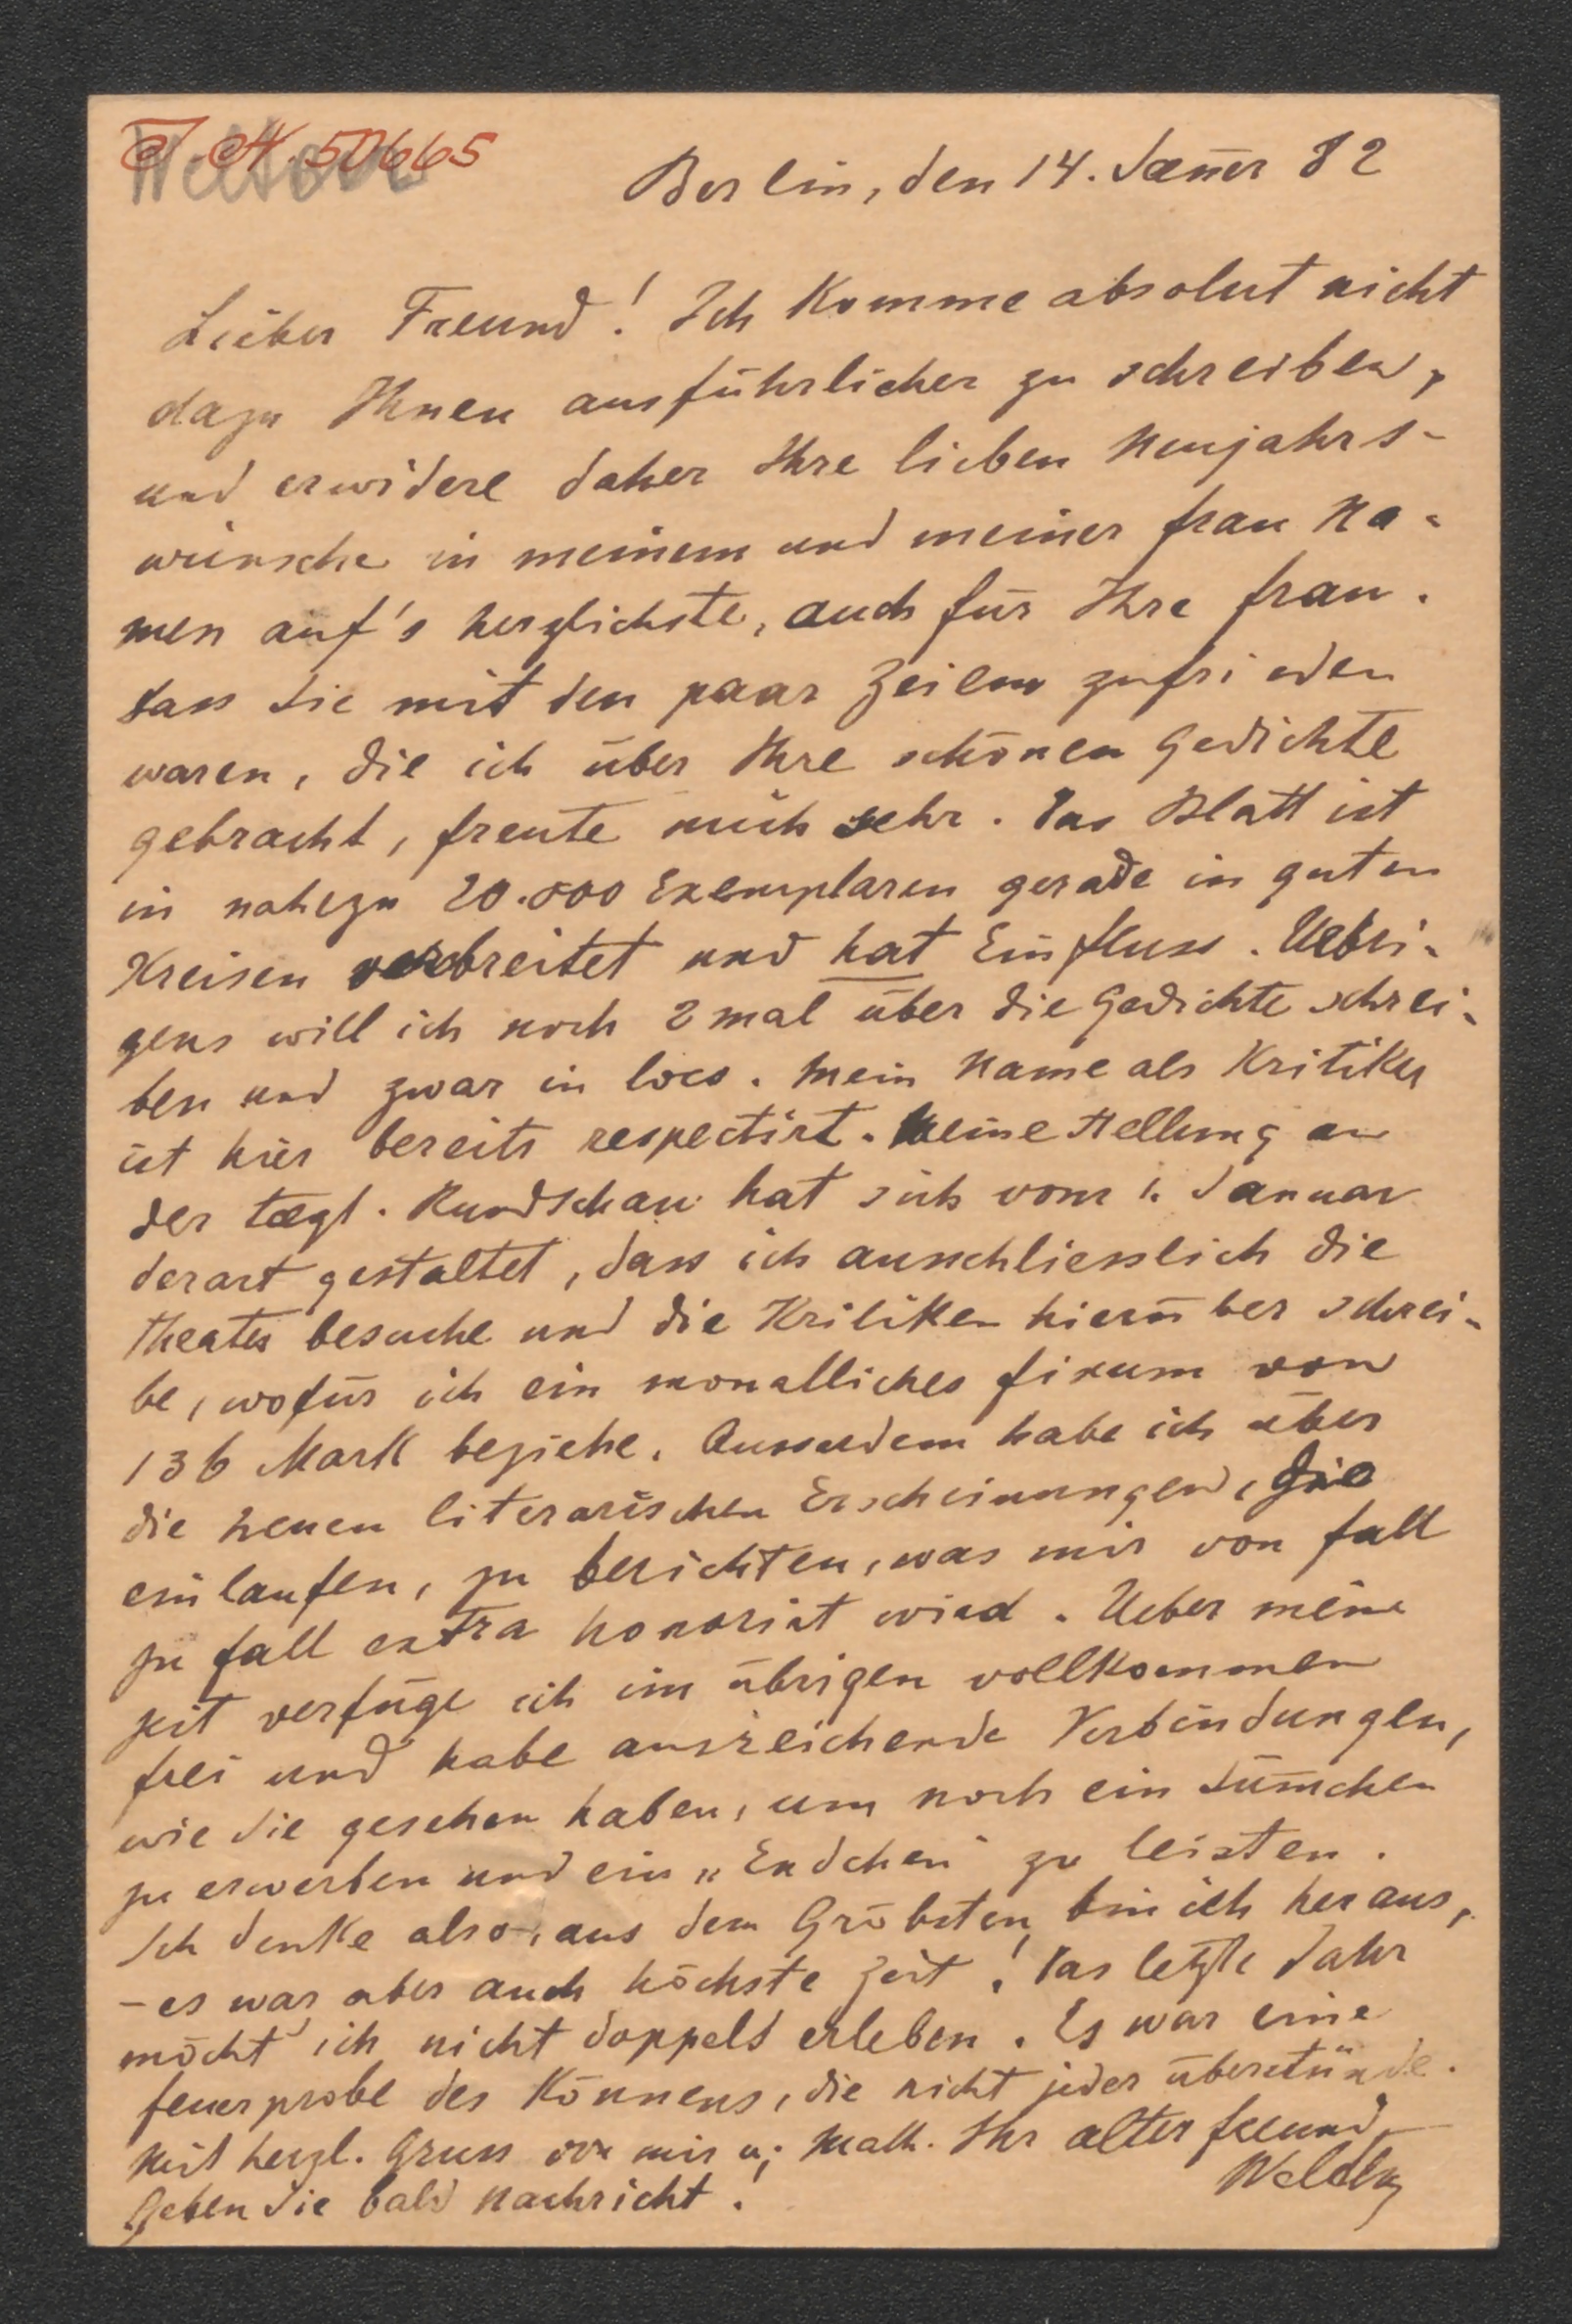 J. N. 50665
Berlin, den 14. Jæñer 82
Lieber Freund! Ich komme absolut nicht
dazu Ihnen ausführlicher zu schreiben,
und erwidere daher Ihre lieben Neujahrs-
wünsche in meinem und meiner Frau Na-
men auf's herzlichste, auch für Ihre Frau.
Dass Sie mit den paar Zeilen zufrieden
waren, die ich über Ihre schönen Gedichte
gebracht, freute mich sehr. Das Blatt ist
in nahezu 20.000 Exemplaren gerade in guten
Kreisen verbreitet und hat Einfluss. Uebri-
gens will ich noch 2 mal über die Gedichte schrei-
ben und zwar in loco. Mein Name als Kritiker
ist hier bereits respectirt. Meine Stellung an
der tægl. Rundschau hat sich vom 1. Januar
derart gestaltet, dass ich ausschliesslich die
Theater besuche und die Kritiken hierüber schrei-
be, wofür ich ein monatliches Fixum von
136 Mark beziehe. Ausserdem habe ich über
die neuen literarischen Erscheinungen, die
einlaufen, zu berichten, was mir von Fall
zu Fall extra honorirt wird. Ueber meine
Zeit verfüge ich im übrigen vollkommen
frei und habe ausreichende Verbindungen,
wie Sie gesehen haben, um noch ein Süm̄chen
zu erwerben und ein „Endchen" zu leisten.
Ich denke also, aus dem Gröbsten bin ich heraus,
- es war aber auch höchste Zeit! Das letzte Jahr
möcht' ich nicht doppelt erleben. Es war eine
Feuerprobe des Könnens, die nicht jeder überstünde.
Mit herzl. Gruss von mir u. Math. Ihr alter Freund
Geben Sie bald Nachricht!